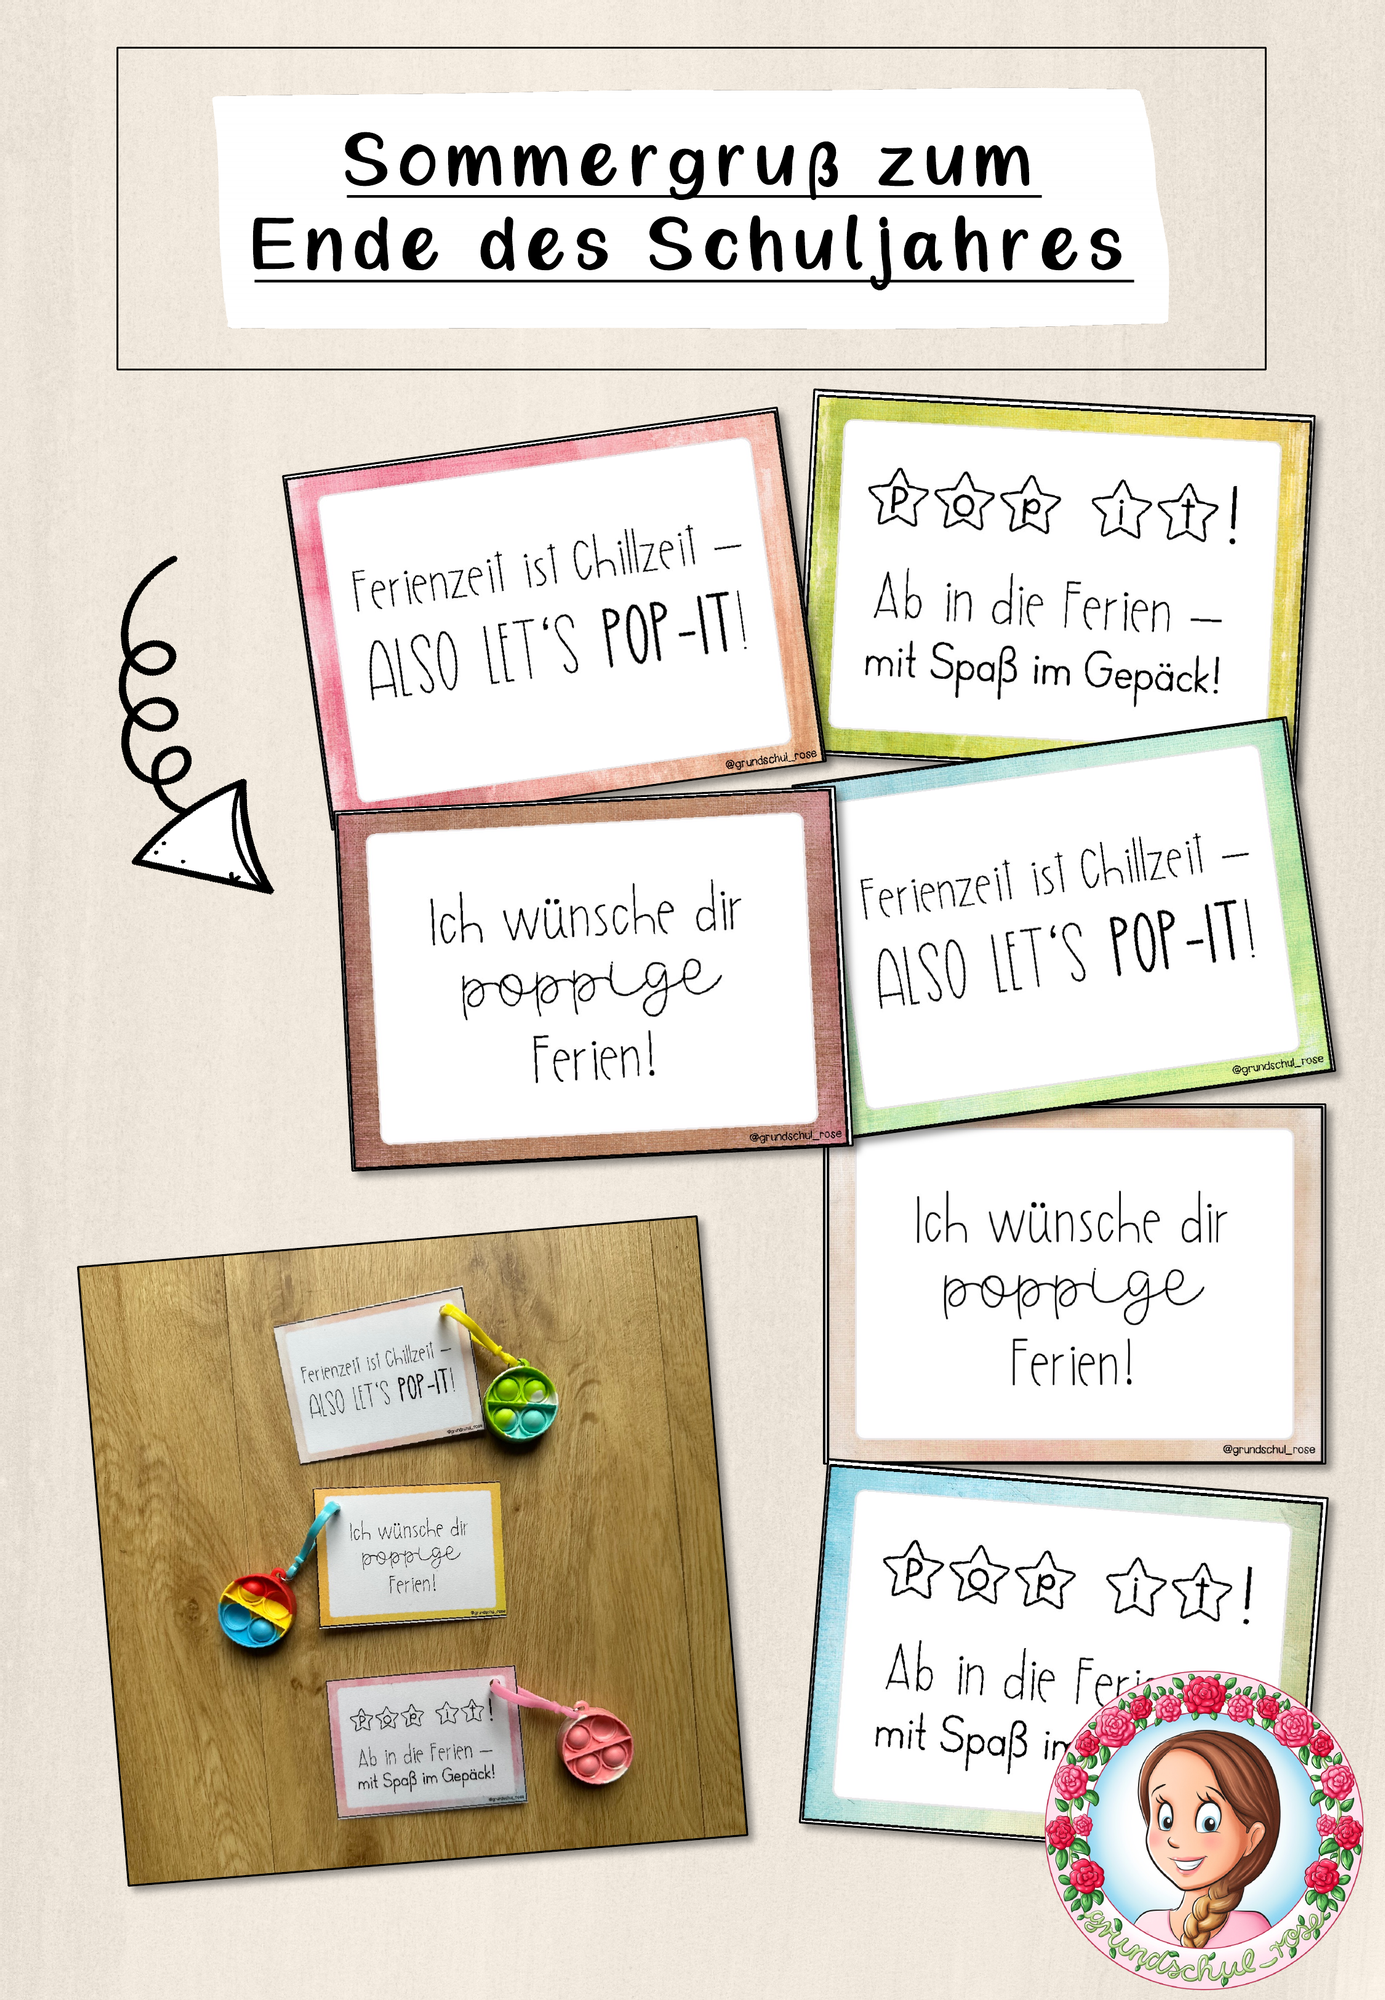 Sommergruß zum
Ende des Schuljahres
Ferienzeit ist Chillzeit –
ALSO LET'S POP-IT!
@grundschul_rose
Pop it!
Ab in die Ferien –
mit Spaß im Gepäck!
Ich wünsche dir
poppige
Ferien!
@grundschul_rose
Ferienzeit ist Chillzeit –
ALSO LET'S POP-IT!
@grundschul_rose
Ich wünsche dir
poppige
Ferien!
@grundschul_rose
Ferienzeit ist Chillzeit –
ALSO LET'S POP-IT!
@grundschul_rose
Ich wünsche dir
poppige
Ferien!
@grundschul_rose
Pop it!
Ab in die Ferien –
mit Spaß im Gepäck!
@grundschul_rose
Pop it!
Ab in die Ferie
mit Spaß im
grundschul_rose